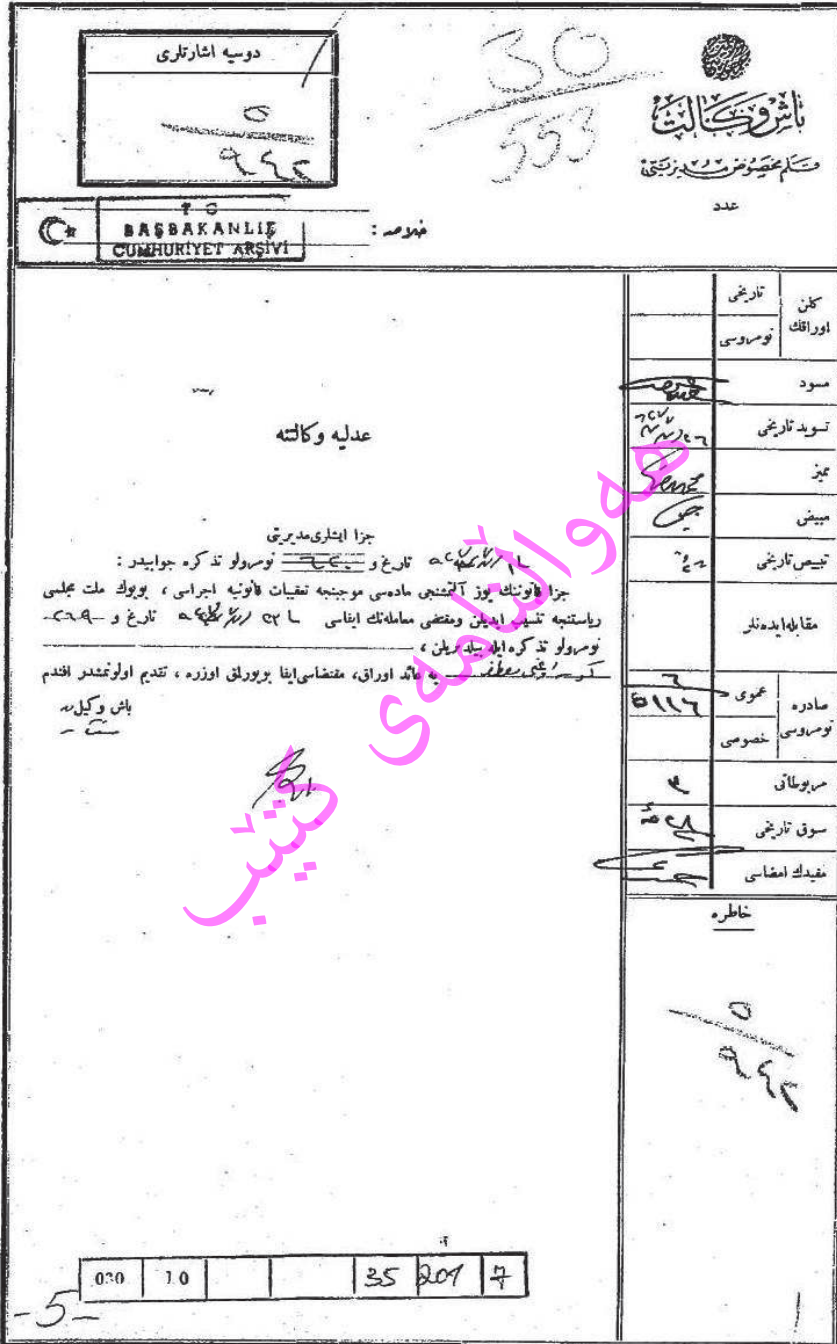 دوسيه اشارتلری
٥
٩٤٢
30
553
باش وكالت
قلم مخصوص مديريتى
عدد
خلاصه :
T C
BAŞBAKANLIK
CUMHURİYET ARŞİVİ
كلن اوراقك
تاريخى
نومروسى
مسود
تسويد تاريخى
مميز
مبيض
تبييض تاريخى
مقابله ايده‌نلر
صادره نومروسى
عمومى
خصوصى
مربوطاتى
٣
سوق تاريخى
مقيدك امضاسى
خاطره
٥
٩٤٢
عدليه وكالتنه
جزا ايشلرى مديريتى
تاريخ و نومرولو تذكره جوابيدر :
جزا قانوننك يوز آلتمشنجى ماده‌سى موجبنجه تعقيبات قانونيه اجراسى ، بويوك ملت مجلسى
رياستنجه تنسيب ايديلن ومقتضى معامله‌نك ايفاسى تاريخ و
نومرولو تذكره ايله بيلديريلن ،
يه عائد اوراق، مقتضاسى ايفا بويورلق اوزره ، تقديم اولونمشدر افندم
باش وكيل
هەواڵنامەی كتێب
030 10 35 201 7
-5-